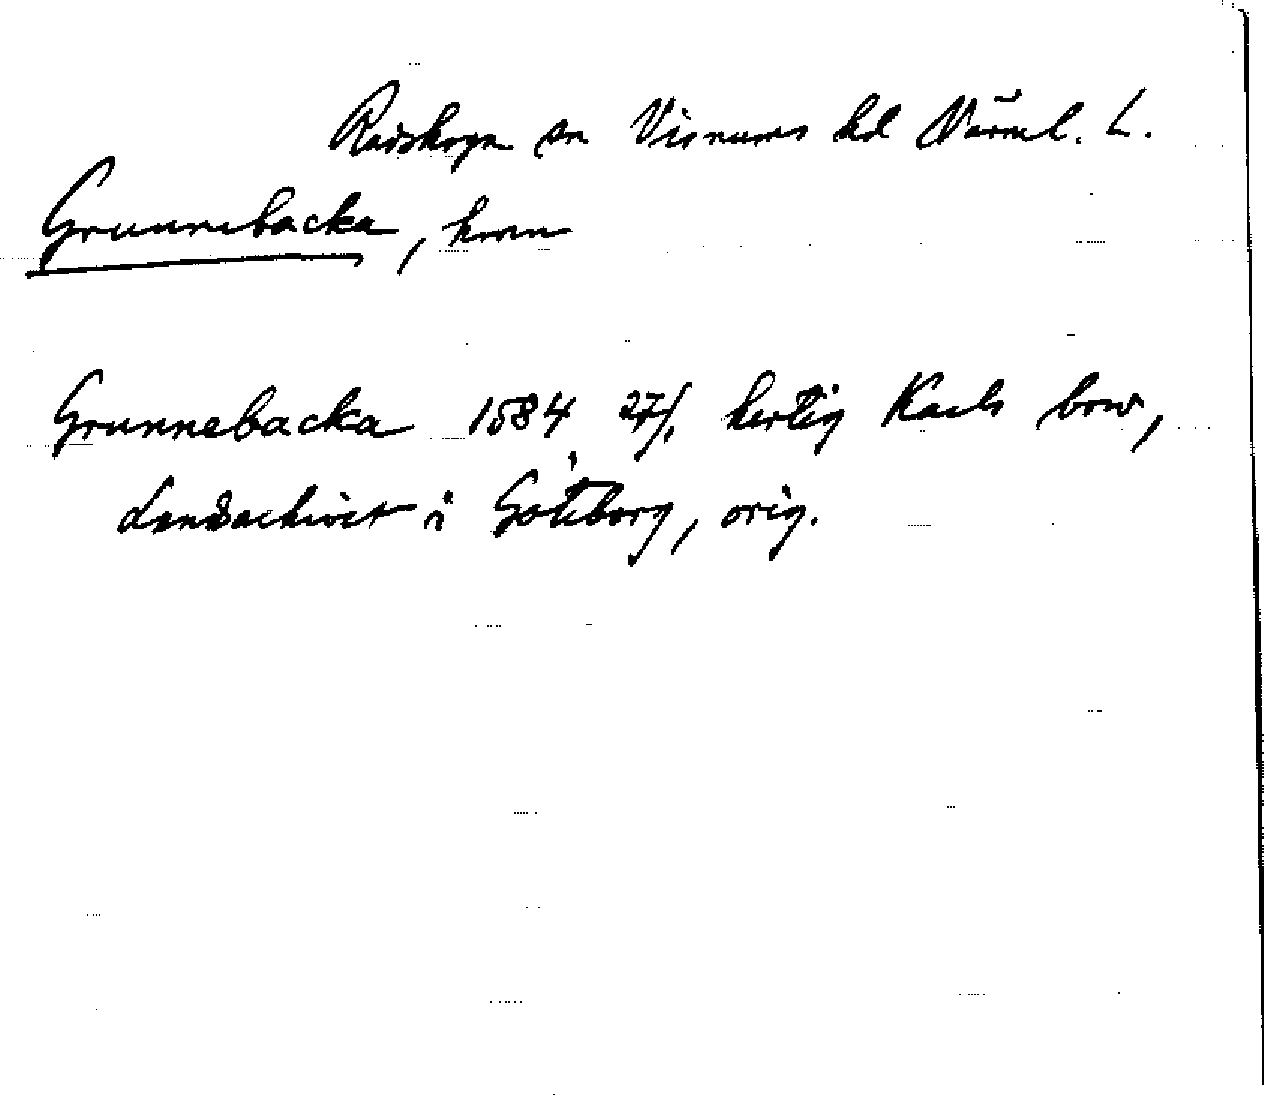 Rudskoga sn Visnums hd Värml. L.
Grunnebacka, hmn
Grunnebacka 1584 27/1 hertig Karls brev,
Landsarkivet i Göteborg, orig.